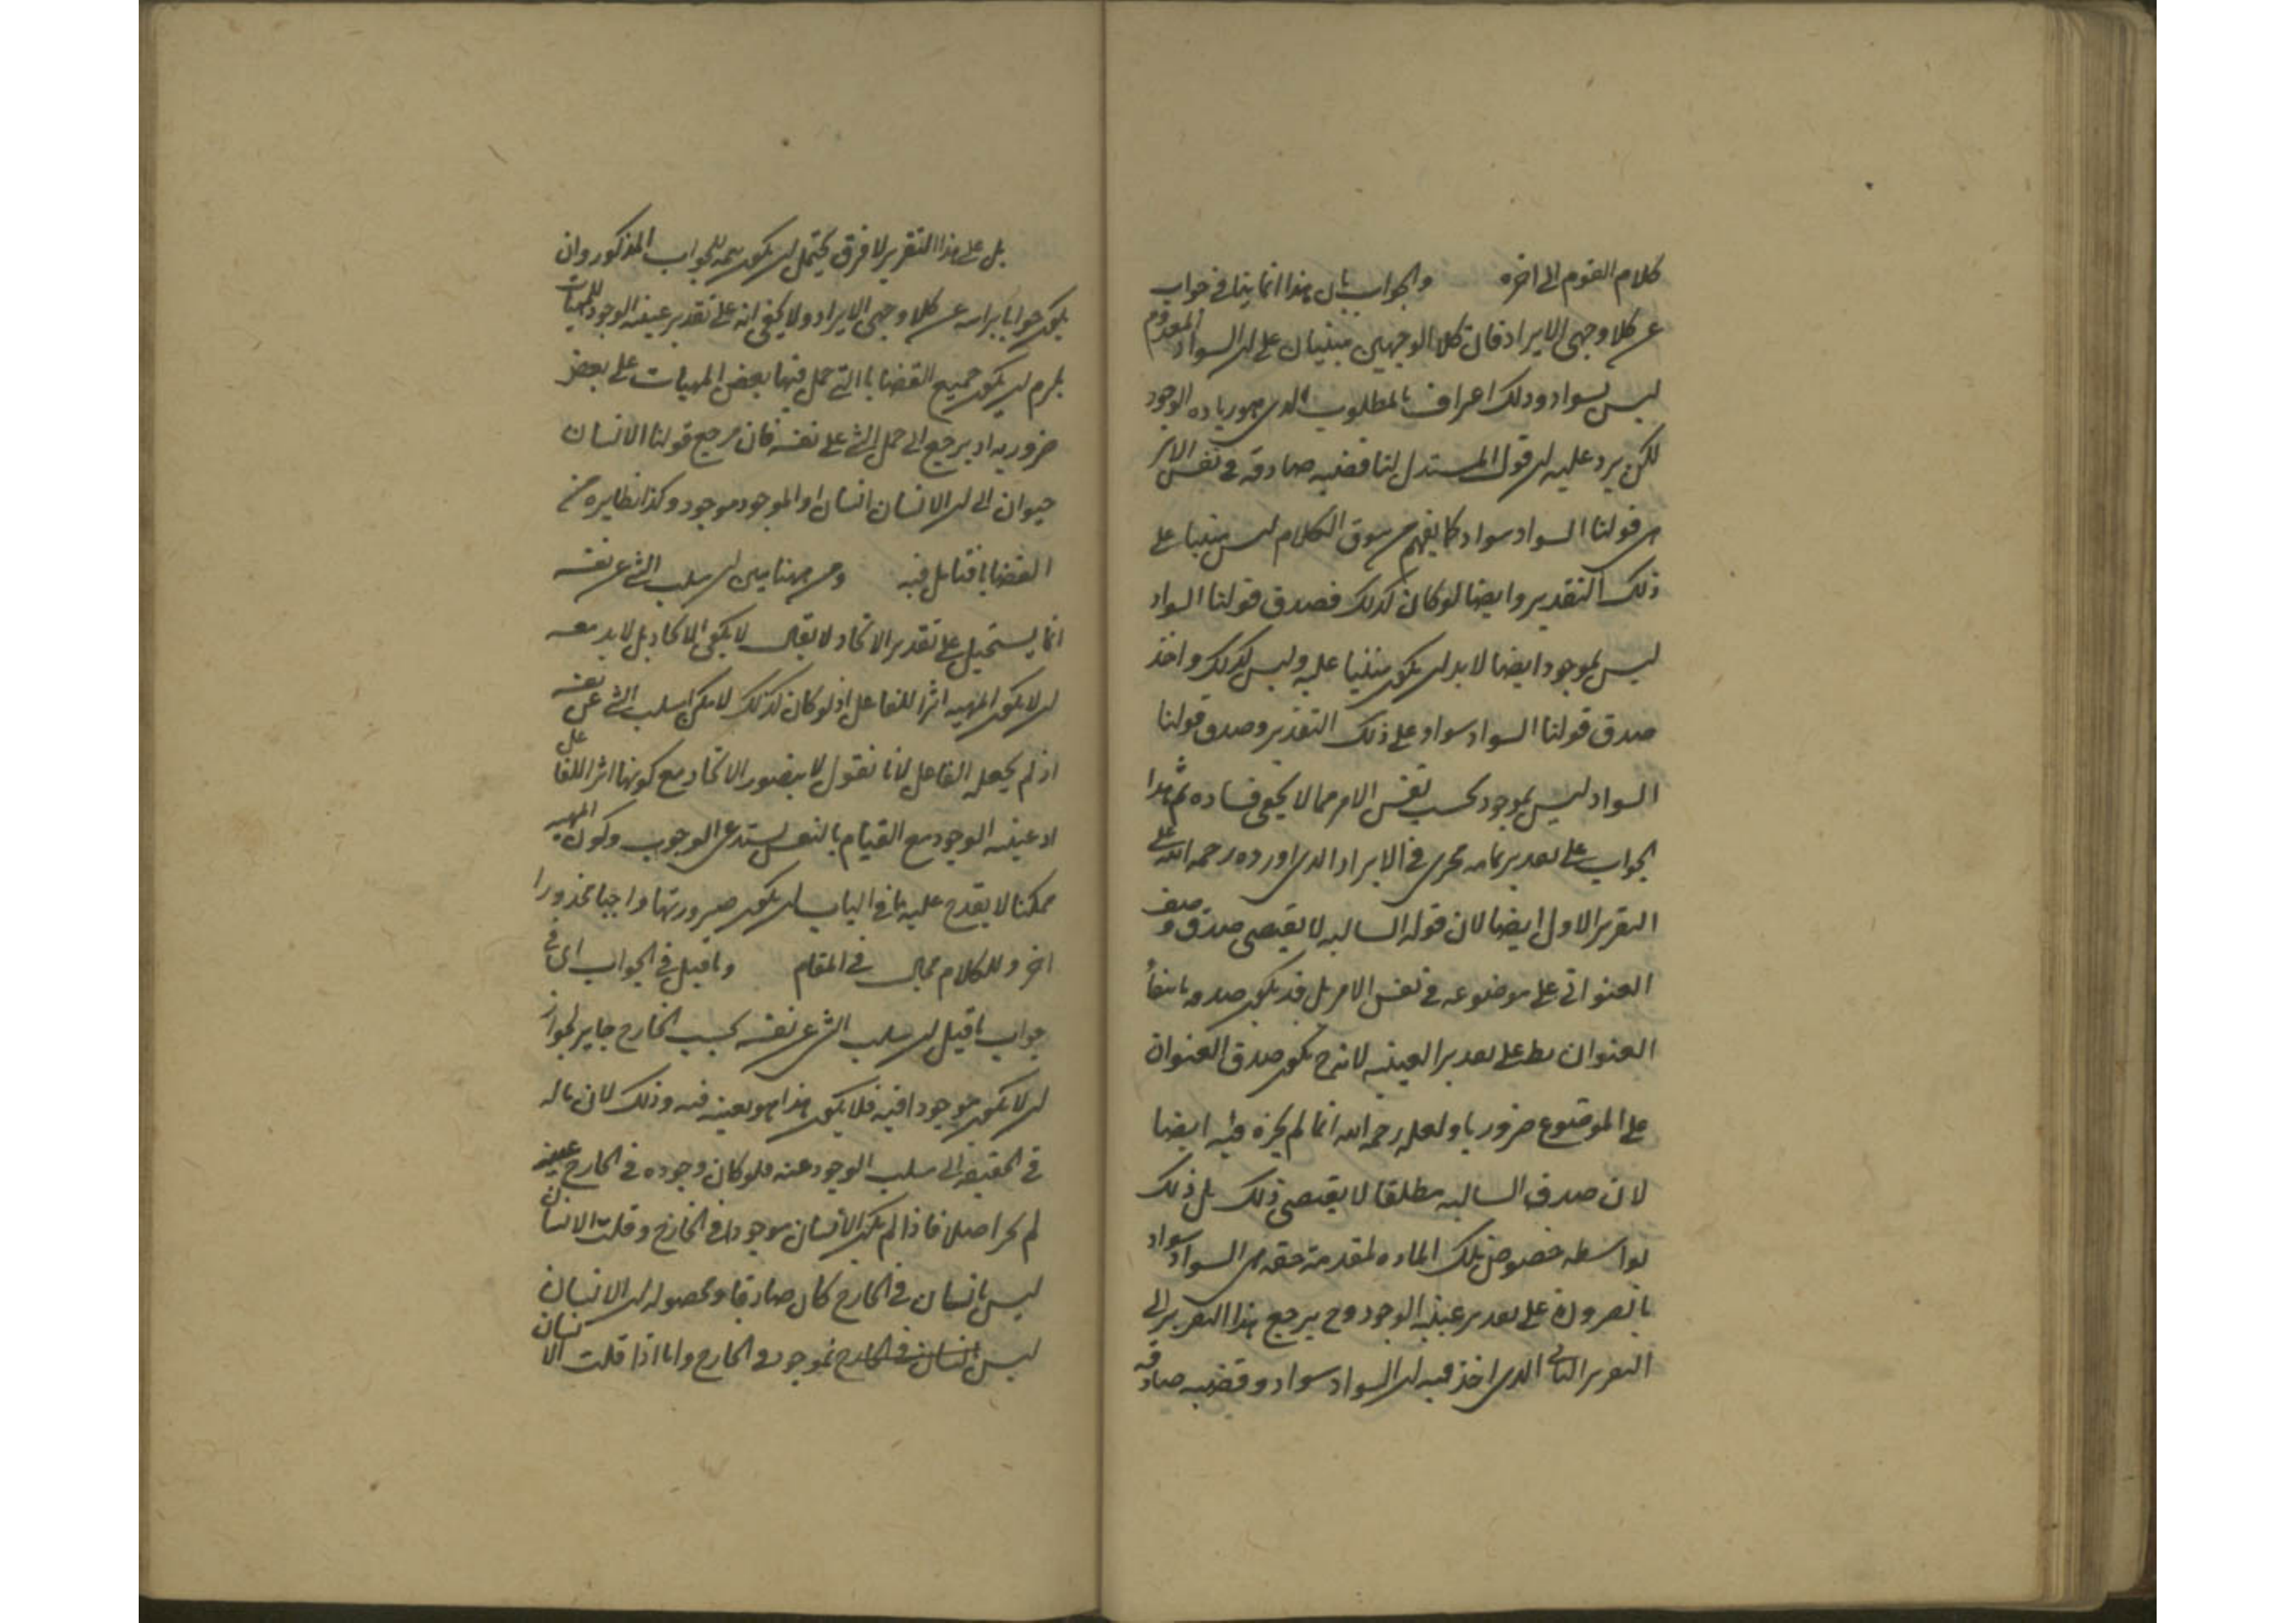 كلام القوم الى اخره والجواب بان هذا انما ينافى جواب
عن كلا وجهى الايراد فان كلا الوجهين مبنيان على ان السواد المعدوم
ليس بسواد وذلك اعراف بالمطلوب الذى هو زياده الوجود
لكن يرد عليه ان قول المستدل لنا قضيه صادقه فى نفس الامر
هى قولنا السواد سواد كما يفهم من سوق الكلام ليس مبنيا على
ذلك التقدير وايضا لو كان كذلك فصدق قولنا السواد
ليس بموجود ايضا لا بد ان يكون مبنيا عليه وليس كذلك واخذ
صدق قولنا السواد سواد على ذلك التقدير وصدق قولنا
السواد ليس بموجود بحسب نفس الامر مما لا يخفى فساده ثم هذا
الجواب على تقدير تمامه يجرى فى الايراد الذى اورده رحمه الله على
التقرير الاول ايضا لان قوله السالبه لا يقتضى صدق وصف
العنوانى على موضوعه فى نفس الامر بل قد يكون صدقه بانتفاء
العنوان بط على تقدير العينيه لانه ح يكون صدق العنوان
على الموضوع ضروريا ولعله رحمه الله انما لم يجره فيه ايضا
لان صدق السالبه مطلقا لا يقتضى ذلك بل ذلك
بواسطه خصوص تلك الماده لمقدمة حقه هى السواد سواد
بالضروره على تقدير عينيه الوجود وح يرجع هذا التقرير الى
التقرير الثانى الذى اخذ فيه ان السواد سواد وقضيه صادقه
بل على هذا التقرير لا فرق يحتمل ان يكون تتمه للجواب المذكور وان
يكون جوابا براسه عن كلا وجهى الايراد ولا يخفى انه على تقدير عينيه الوجود للمهيات
يلزم ان يكون جميع القضايا التى حمل فيها بعض المهيات على بعض
ضروريه اذ يرجع الى حمل الشئ على نفسه فان مرجع قولنا الانسان
حيوان الى ان الانسان انسان او الموجود موجود وكذا نظايره من
القضايا فتامل فيه ومن ههنا يتبين ان سلب الشئ عن نفسه
انما يستحيل على تقدير الاتحاد لا يقال لا يكفى الاتحاد بل لا بد معه
ان لا يكون المهيه اثرا للفاعل اذ لو كان كذلك لامكن سلب الشئ عن نفسه
اذ لم يجعله الفاعل لانا نقول لا يتصور الاتحاد مع كونها اثرا للفاعل
اذ عينيه الوجود مع القيام بالنفس يستدعى الوجوب وكون المهيه
ممكنا لا يقدح عليه ما فى الباب ان يكون صيرورتها واجبا محذورا
اخر وللكلام مجال فى المقام وما قيل فى الجواب اى فى
جواب ما قيل ان سلب الشئ عن نفسه بحسب الخارج جايز لجواز
ان لا يكون موجودا فيه فلا يكون هذا هو بعينه فيه وذلك لان ماله
فى الحقيقه الى سلب الوجود عنه فلو كان وجوده فى الخارج عينه
لم يجز اصلا فاذا لم يكن الانسان موجودا فى الخارج وقلت الانسان
ليس بانسان فى الخارج كان صادقا ومحصوله ان الانسان
ليس انسان فى الخارج بموجود فى الخارج واما اذا قلت الانسان